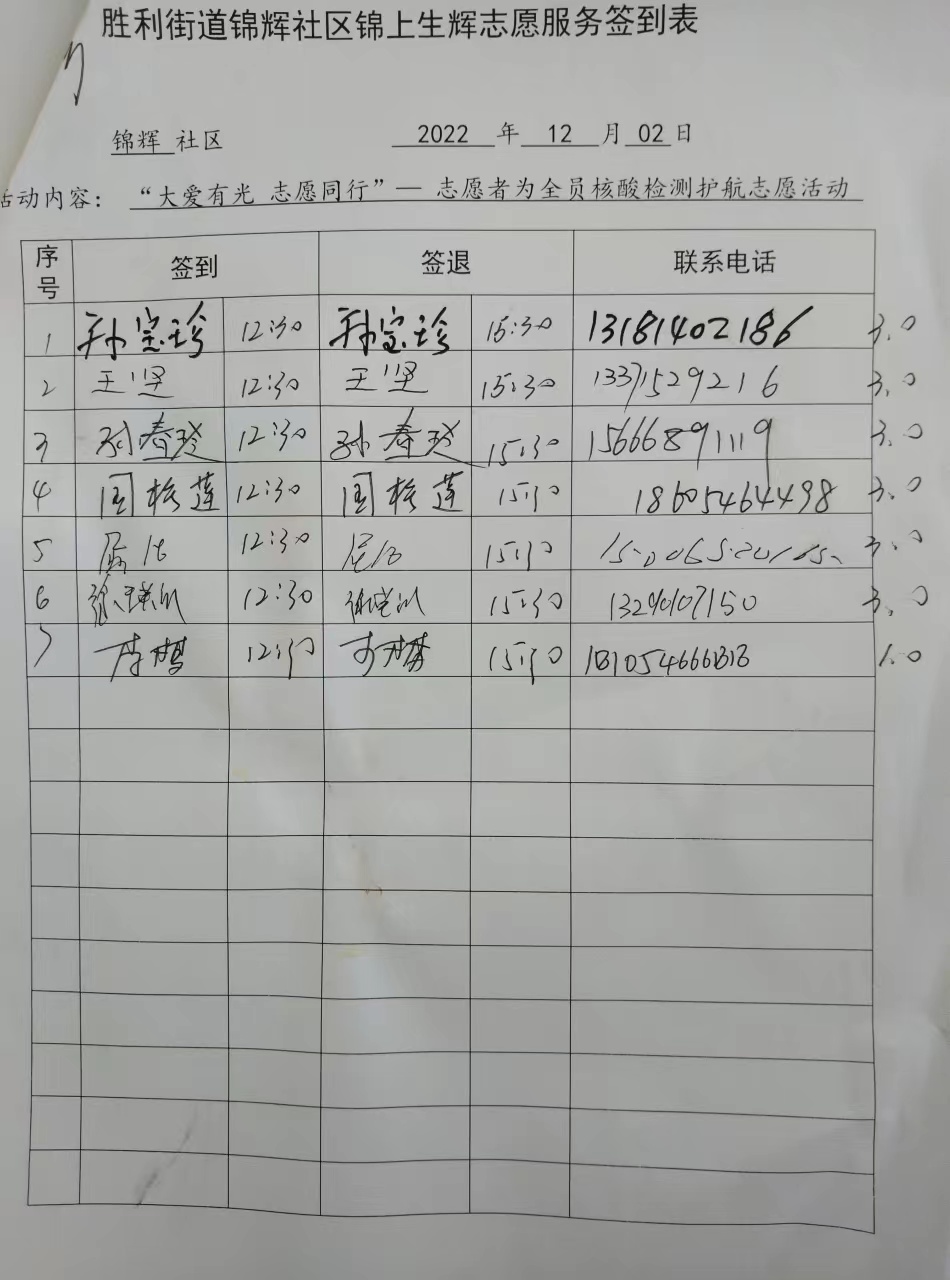 胜利街道锦辉社区锦上生辉志愿服务签到表
锦辉 社区 2022 年 12 月 02 日
活动内容： “大爱有光 志愿同行”— 志愿者为全员核酸检测护航志愿活动
序号 签到 签退 联系电话
1 孙宝珍 12:30 孙宝珍 15:30 13181402186 3.0
2 王坚 12:30 王坚 15:30 13371529216 3.0
3 孙春玲 12:30 孙春玲 15:30 15666891119 3.0
4 国 莲 12:30 国 莲 15:30 18605464498 3.0
5 12:30 15:30 3.0
6 12:30 15:30 13290107150 3.0
7 12:30 15:30 1.0